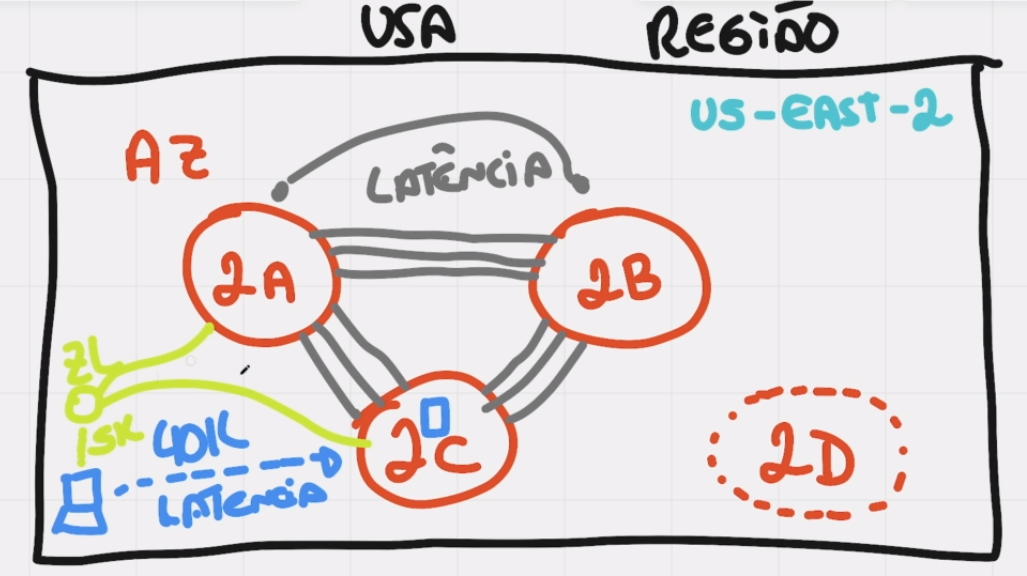 USA
REGIÃO
US-EAST-2
AZ
LATÊNCIA
2A
2B
ZL
15K
40K
LATENCIA
2C
2D